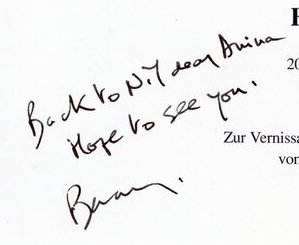 H
20
Back to N.Y dear Anina
Hope to see you.
Zur Vernissa
von